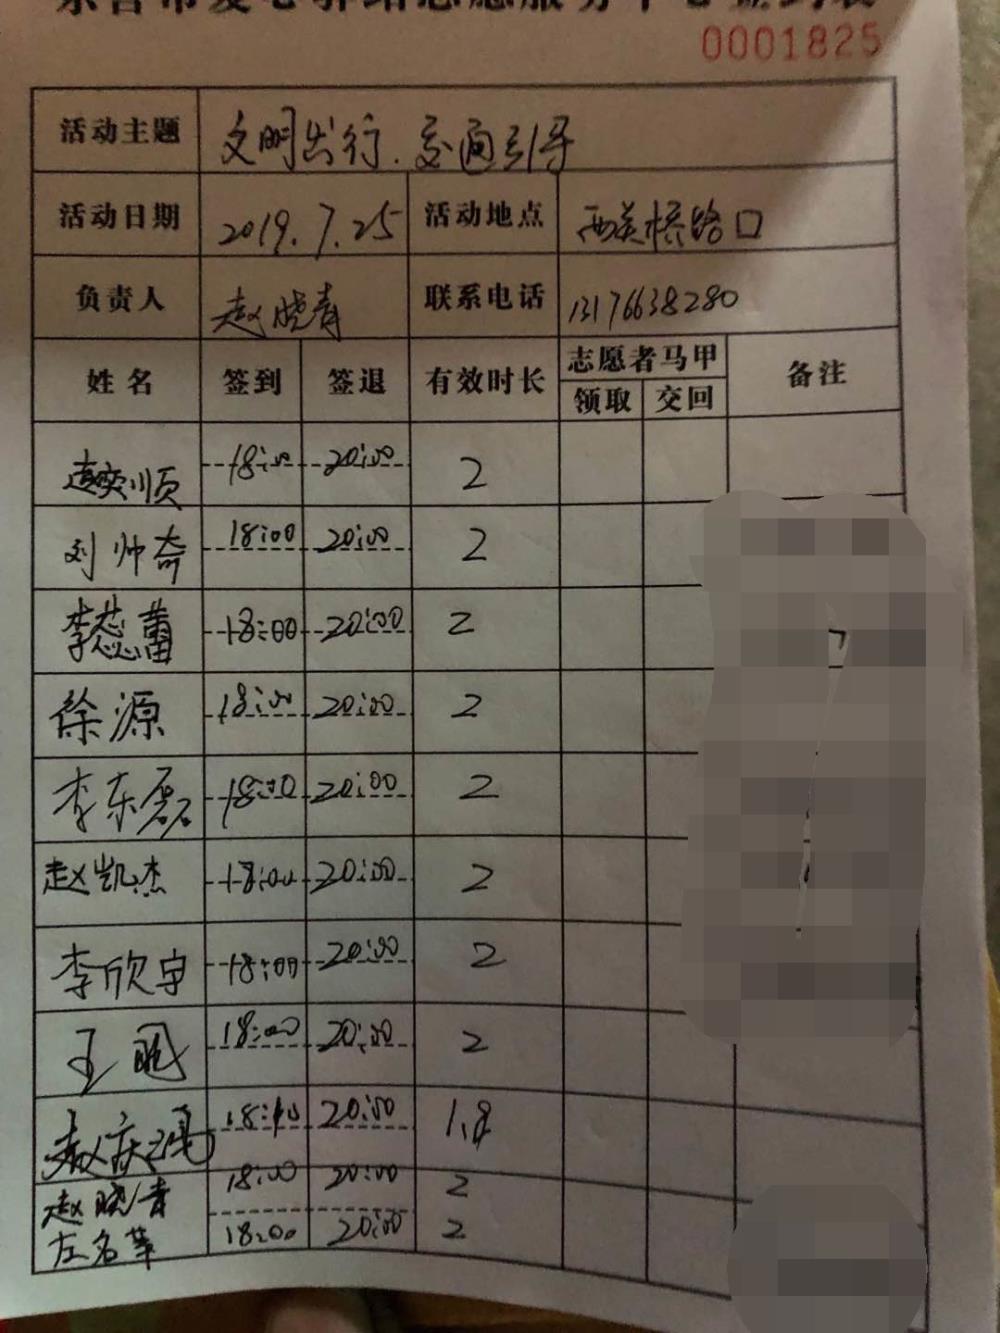 0001825
活动主题 文明出行.交通引导
活动日期 2019.7.25 活动地点 西关桥路口
负责人 赵晓青 联系电话 13176638280
姓名 签到 签退 有效时长 志愿者马甲 备注
领取 交回
18:00 20:00 2
刘帅奇 18:00 20:00 2
李蕊蕾 18:00 20:00 2
徐源 18:00 20:00 2
李东磊 18:00 20:00 2
赵凯杰 18:00 20:00 2
李欣宇 18:00 20:00 2
王 18:00 20:00 2
赵庆 18:10 20:00 1.8
赵晓青 18:00 20:00 2
左名苹 18:00 20:00 2